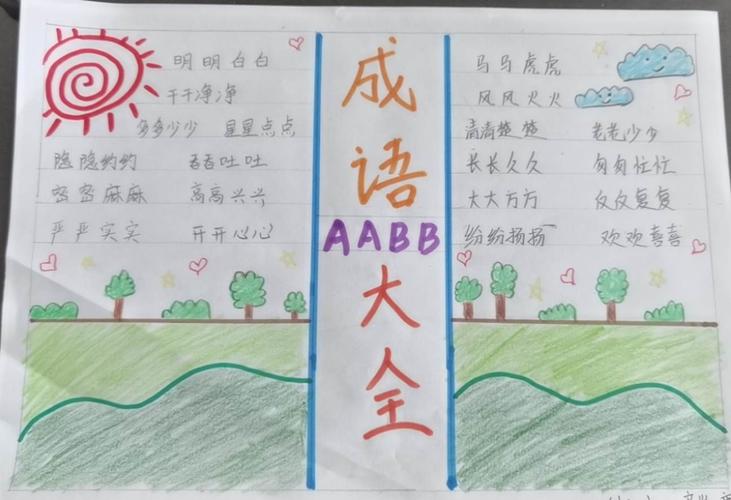 明明白白
干干净净
多多少少 星星点点
隐隐约约 吞吞吐吐
密密麻麻 高高兴兴
严严实实 开开心心
成
语
AABB
大
全
马马虎虎
风风火火
清清楚楚 老老少少
长长久久 匆匆忙忙
大大方方 反反复复
纷纷扬扬 欢欢喜喜